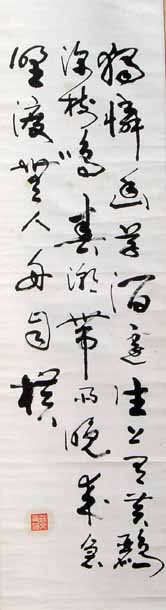 獨憐幽草澗邊生上有黃鸝
深樹鳴春潮帶雨晚來急
野渡無人舟自橫